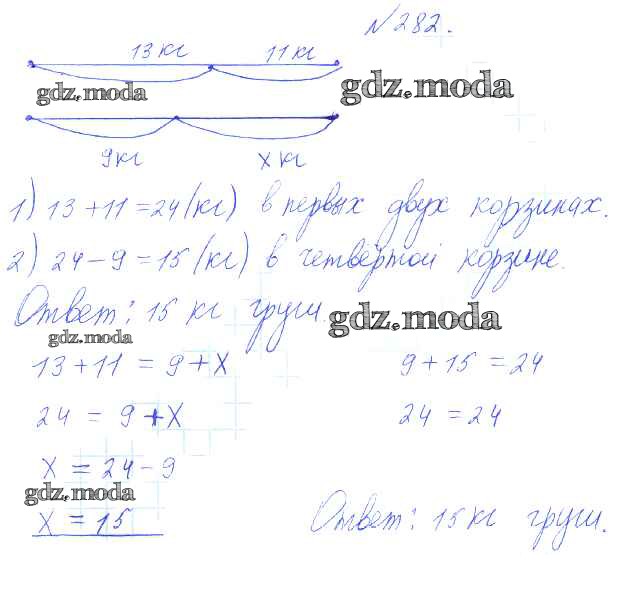 №282.
13 кг 11 кг
gdz.moda gdz.moda
9кг x кг
1) 13 + 11 = 24 (кг) в первых двух корзинах.
2) 24 - 9 = 15 (кг) в четвёртой корзине.
Ответ: 15 кг груш.
gdz.moda
gdz.moda
13 + 11 = 9 + x 9 + 15 = 24
24 = 9 + x 24 = 24
x = 24 - 9
gdz.moda
x = 15 Ответ: 15 кг груш.